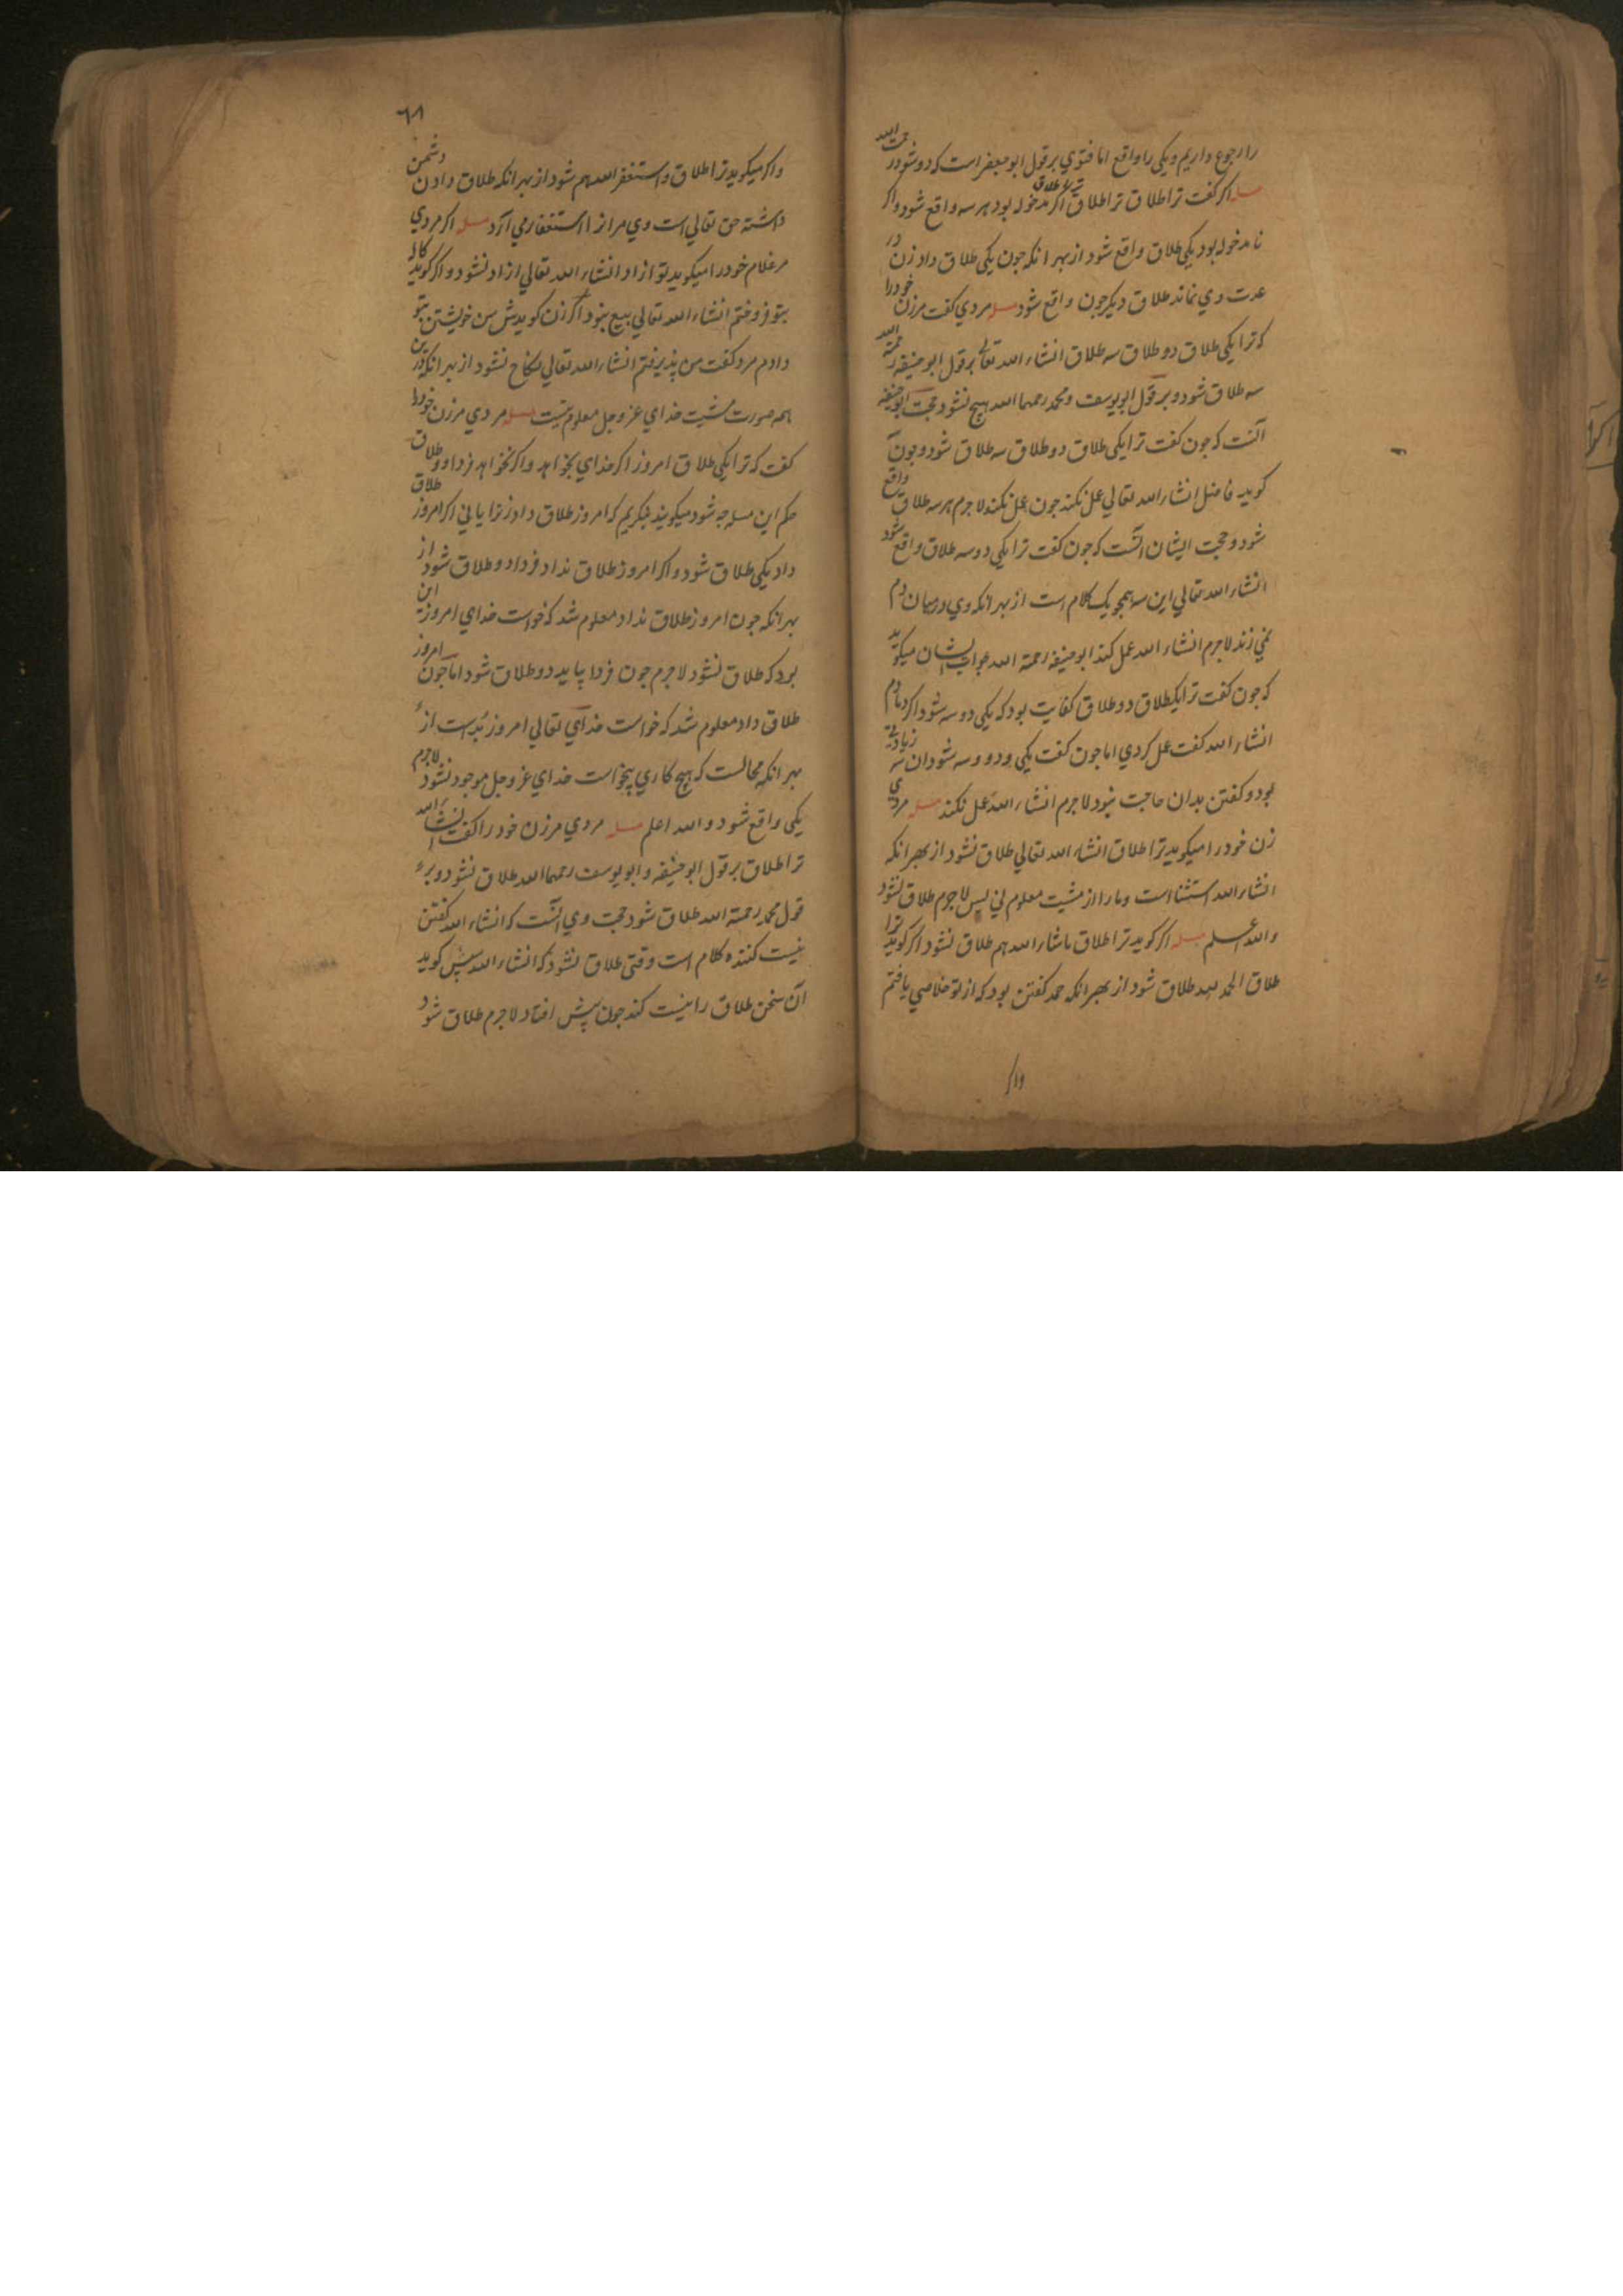 را رجوع داریم ویکی را واقع اما فتوي بر قول ابو جعفر است که دو شود رحمت الله
مسله اکر کفت ترا طلاق ترا طلاق ترا طلاق اکر مدخوله بود هر سه واقع شود واکر
نامدخوله بود یکی طلاق واقع شود از بهر انکه جون یکی طلاق داد زن در
عدت وي نماند طلاق دیکر جون واقع شود مسله مردي کفت مر زن خود را
که ترا یکی طلاق دو طلاق سه طلاق انشاء الله تعالی بر قول ابو حنیفه رحمة الله
سه طلاق شود و بر قول ابو یوسف ومحمد رحمهما الله هیچ نشود حجت ابو حنیفه
آنست که جون کفت ترا یکی طلاق دو طلاق سه طلاق شود و جون
کویید فاضل انشاء الله تعالي عمل نکند جون عمل نکند لاجرم هر سه طلاق واقع
شود وحجت ایشان آنست که جون کفت ترا یکی دو سه طلاق واقع شود
انشاء الله تعالي این سه همجو یک کلام است از بهر انکه وي درمیان دم
نمي زند لاجرم انشاء الله عمل کند ابو حنیفه رحمة الله جواب ایشان میکوید
که جون کفت ترا یکطلاق دو طلاق کفایت بود که یکی دو سه شود اکر دمادم
انشاء الله کفت عمل کردي اما جون کفت یکی ودو وسه شود ان سه زیادتی
بود وکفتن بدان حاجت نبود لاجرم انشاء الله عمل نکند مسله مردي
زن خود را میکوید ترا طلاق انشاء الله تعالي طلاق نشود از بهر انکه
انشاء الله استثنا است وما را از مشیت معلوم ني پس لاجرم طلاق نشود
والله اعلم مسله اکر کوید ترا طلاق ماشاء الله هم طلاق نشود اکر کوید ترا
طلاق الحمد لله طلاق شود از بهر انکه حمد کفتن بود که از تو خلاصي یافتم
واکر
٦٨
واکر میکوید ترا طلاق واستغفر الله هم شود از بهر انکه طلاق دادن دشمن
داشته حق تعالي است وي مر انرا استغفار مي آرد مسله اکر مردي
مر غلام خود را میکوید تو ازاد انشاء الله تعالي ازاد نشود و اکر کوید کالا
بتو فروختم انشاء الله تعالي بیع نبود اکر زن کویدش من خویشتن بتو
دادم مرد کفت من پذیرفتم انشاء الله تعالي نکاح نشود از بهر انکه درین
همه صورت مشیت خداي عز وجل معلوم نیست مسله مردي مر زن خود را
کفت که ترا یکی طلاق امروز اکر خداي بخواهد واکر نخواهد فردا دو طلاق
حکم این مسله جه شود میکویند بنکریم که امروز طلاق داد زنرا یا ني اکر امروز طلاق
داد یکی طلاق شود واکر امروز طلاق نداد فردا دو طلاق شود از
بهر انکه جون امروز طلاق نداد معلوم شد که خواست خداي امروز این
بود که طلاق نشود لاجرم جون فردا بیاید دو طلاق شود اما جون امروز
طلاق داد معلوم شد که خواست خداي تعالي امروز بُدست از
بهر انکه محالست که هیچ کاري بیخواست خداي عز وجل موجود نشود لاجرم
یکی واقع شود والله اعلم مسله مردي مر زن خود را کفت انشاء الله
ترا طلاق بر قول ابو حنیفه وابو یوسف رحمهما الله طلاق نشود و بر
قول محمد رحمة الله طلاق شود حجت وي آنست که انشاء الله کفتن
نیست کننده کلام است وقتی طلاق نشود که انشاء الله سپس کوید
آن سخن طلاق را نیست کند جون پیش افتاد لاجرم طلاق شود